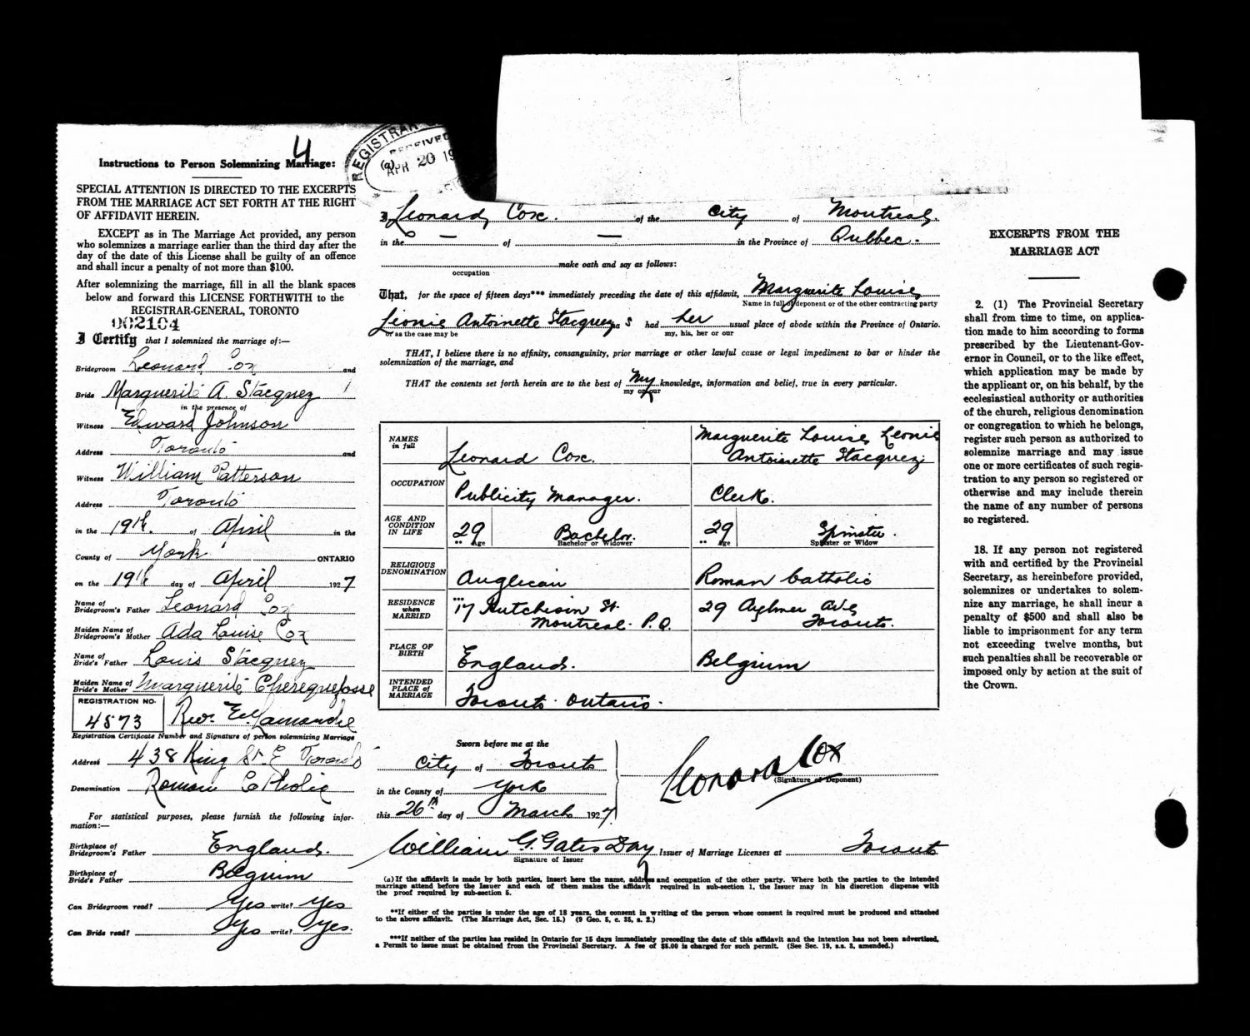 4
Instructions to Person Solemnizing Marriage:
SPECIAL ATTENTION IS DIRECTED TO THE EXCERPTS
FROM THE MARRIAGE ACT SET FORTH AT THE RIGHT
OF AFFIDAVIT HEREIN.
EXCEPT as in The Marriage Act provided, any person
who solemnizes a marriage earlier than the third day after the
day of the date of this License shall be guilty of an offence
and shall incur a penalty of not more than $100.
After solemnizing the marriage, fill in all the blank spaces
below and forward this LICENSE FORTHWITH to the
REGISTRAR-GENERAL, TORONTO
002104
I Certify that I solemnized the marriage of:—
Bridegroom Leonard Cox and
Bride Marguerite A. Stacquez
in the presence of
Witness Edward Johnson
Address Toronto and
Witness William Patterson
Address Toronto
in the 19th of April in the
County of York ONTARIO
on the 19th day of April 1927
Name of Bridegroom's Father Leonard Cox
Maiden Name of Bridegroom's Mother Ada Louise Cox
Name of Bride's Father Louis Stacquez
Maiden Name of Bride's Mother Marguerite
REGISTRATION NO.
4573 Rev. E. Lamandre
Registration Certificate Number and Signature of person solemnizing Marriage
Address 438 King St E Toronto
Denomination Roman Catholic
For statistical purposes, please furnish the following infor-
mation:—
Birthplace of Bridegroom's Father England.
Birthplace of Bride's Father Belgium
Can Bridegroom read? Yes write? Yes
Can Bride read? Yes write? Yes.
REGISTRAR
RECEIVED
APR 20 19
(a)
I, Leonard Cox. of the City of Montreal,
in the — of — in the Province of Quebec.
occupation make oath and say as follows:
That, for the space of fifteen days*** immediately preceding the date of this affidavit, Marguerite Louise,
Name in full of deponent or of the other contracting party
Leonie Antoinette Stacquez, had her usual place of abode within the Province of Ontario.
or as the case may be my, his, her or our
THAT, I believe there is no affinity, consanguinity, prior marriage or other lawful cause or legal impediment to bar or hinder the
solemnization of the marriage, and
THAT the contents set forth herein are to the best of my knowledge, information and belief, true in every particular.
my or our
NAMES in full Leonard Cox. Marguerite Louise, Leonie Antoinette Stacquez
OCCUPATION Publicity Manager. Clerk.
AGE AND CONDITION IN LIFE 29 Bachelor. 29 Spinster.
** Age Bachelor or Widower ** Age Spinster or Widow
RELIGIOUS DENOMINATION Anglican Roman Catholic
RESIDENCE when MARRIED *** 17 Hutchison St. Montreal. P.Q. 29 Aylmer Ave, Toronto.
PLACE OF BIRTH England. Belgium
INTENDED PLACE of MARRIAGE Toronto. Ontario.
Sworn before me at the
City of Toronto
in the County of York
this 26th day of March 1927
Leonard Cox
(Signature of Deponent)
William G. Gates Day Issuer of Marriage Licenses at Toronto
Signature of Issuer
(a) If the affidavit is made by both parties, insert here the name, address and occupation of the other party. Where both the parties to the intended
marriage attend before the Issuer and each of them makes the affidavit required in sub-section 1, the Issuer may in his discretion dispense with
the proof required by sub-section 5.
**If either of the parties is under the age of 18 years, the consent in writing of the person whose consent is required must be produced and attached
to the above affidavit. (The Marriage Act, Sec. 15.) (9 Geo. 5, c. 35, s. 2.)
***If neither of the parties has resided in Ontario for 15 days immediately preceding the date of this affidavit and the intention has not been advertised,
a Permit to issue must be obtained from the Provincial Secretary. A fee of $5.00 is charged for such permit. (See Sec. 19, s.s. 3, amended.)
EXCERPTS FROM THE
MARRIAGE ACT
2. (1) The Provincial Secretary
shall from time to time, on applica-
tion made to him according to forms
prescribed by the Lieutenant-Gov-
ernor in Council, or to the like effect,
which application may be made by
the applicant or, on his behalf, by the
ecclesiastical authority or authorities
of the church, religious denomination
or congregation to which he belongs,
register such person as authorized to
solemnize marriage and may issue
one or more certificates of such regis-
tration to any person so registered or
otherwise and may include therein
the name of any number of persons
so registered.
18. If any person not registered
with and certified by the Provincial
Secretary, as hereinbefore provided,
solemnizes or undertakes to solem-
nize any marriage, he shall incur a
penalty of $500 and shall also be
liable to imprisonment for any term
not exceeding twelve months, but
such penalties shall be recoverable or
imposed only by action at the suit of
the Crown.